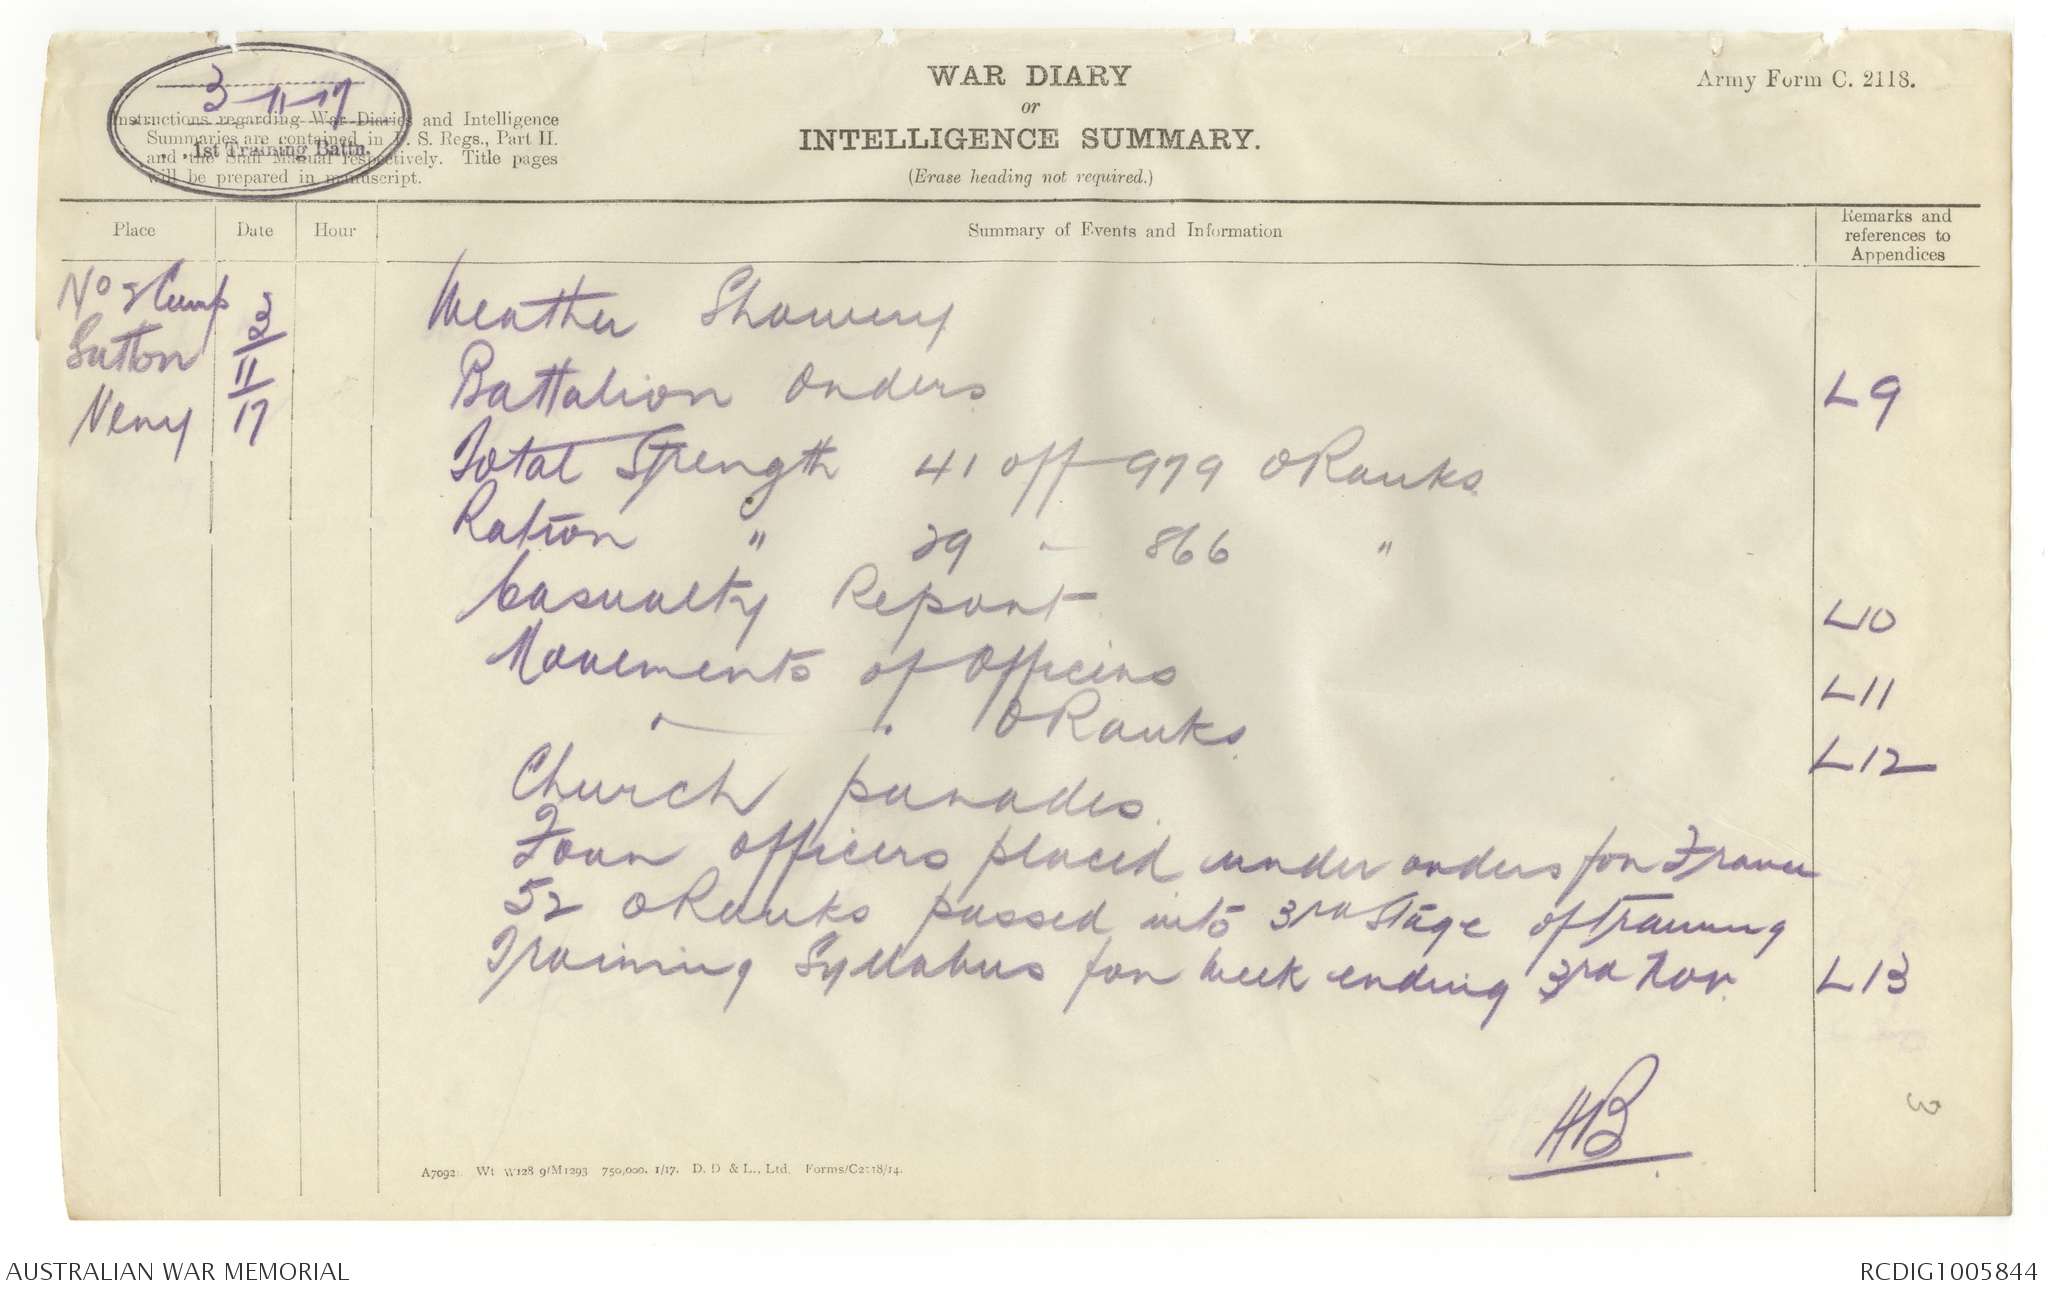 3-11-17
1st Training Battn.
Instructions regarding War Diaries and Intelligence
Summaries are contained in F. S. Regs., Part II.
and the Staff Manual respectively. Title pages
will be prepared in manuscript.
WAR DIARY
or
INTELLIGENCE SUMMARY.
(Erase heading not required.)
Army Form C. 2118.
Place
Date
Hour
Summary of Events and Information
Remarks and
references to
Appendices
No 2 Camp
Sutton
Veny
3
11
17
Weather Showery
Battalion Orders L9
Total Strength 41 off 979 ORanks
Ration " 29 - 866 "
Casualty Report L10
Movements of Officers L11
" ORanks. L12
Church parades.
Four Officers placed under orders for France
52 ORanks passed into 3rd Stage of Training
Training Syllabus for Week ending 3rd Nov. L13
HB
3
A7092. Wt W128 9/M1293 750,000. 1/17. D. D & L., Ltd. Forms/C2118/14.
AUSTRALIAN WAR MEMORIAL
RCDIG1005844